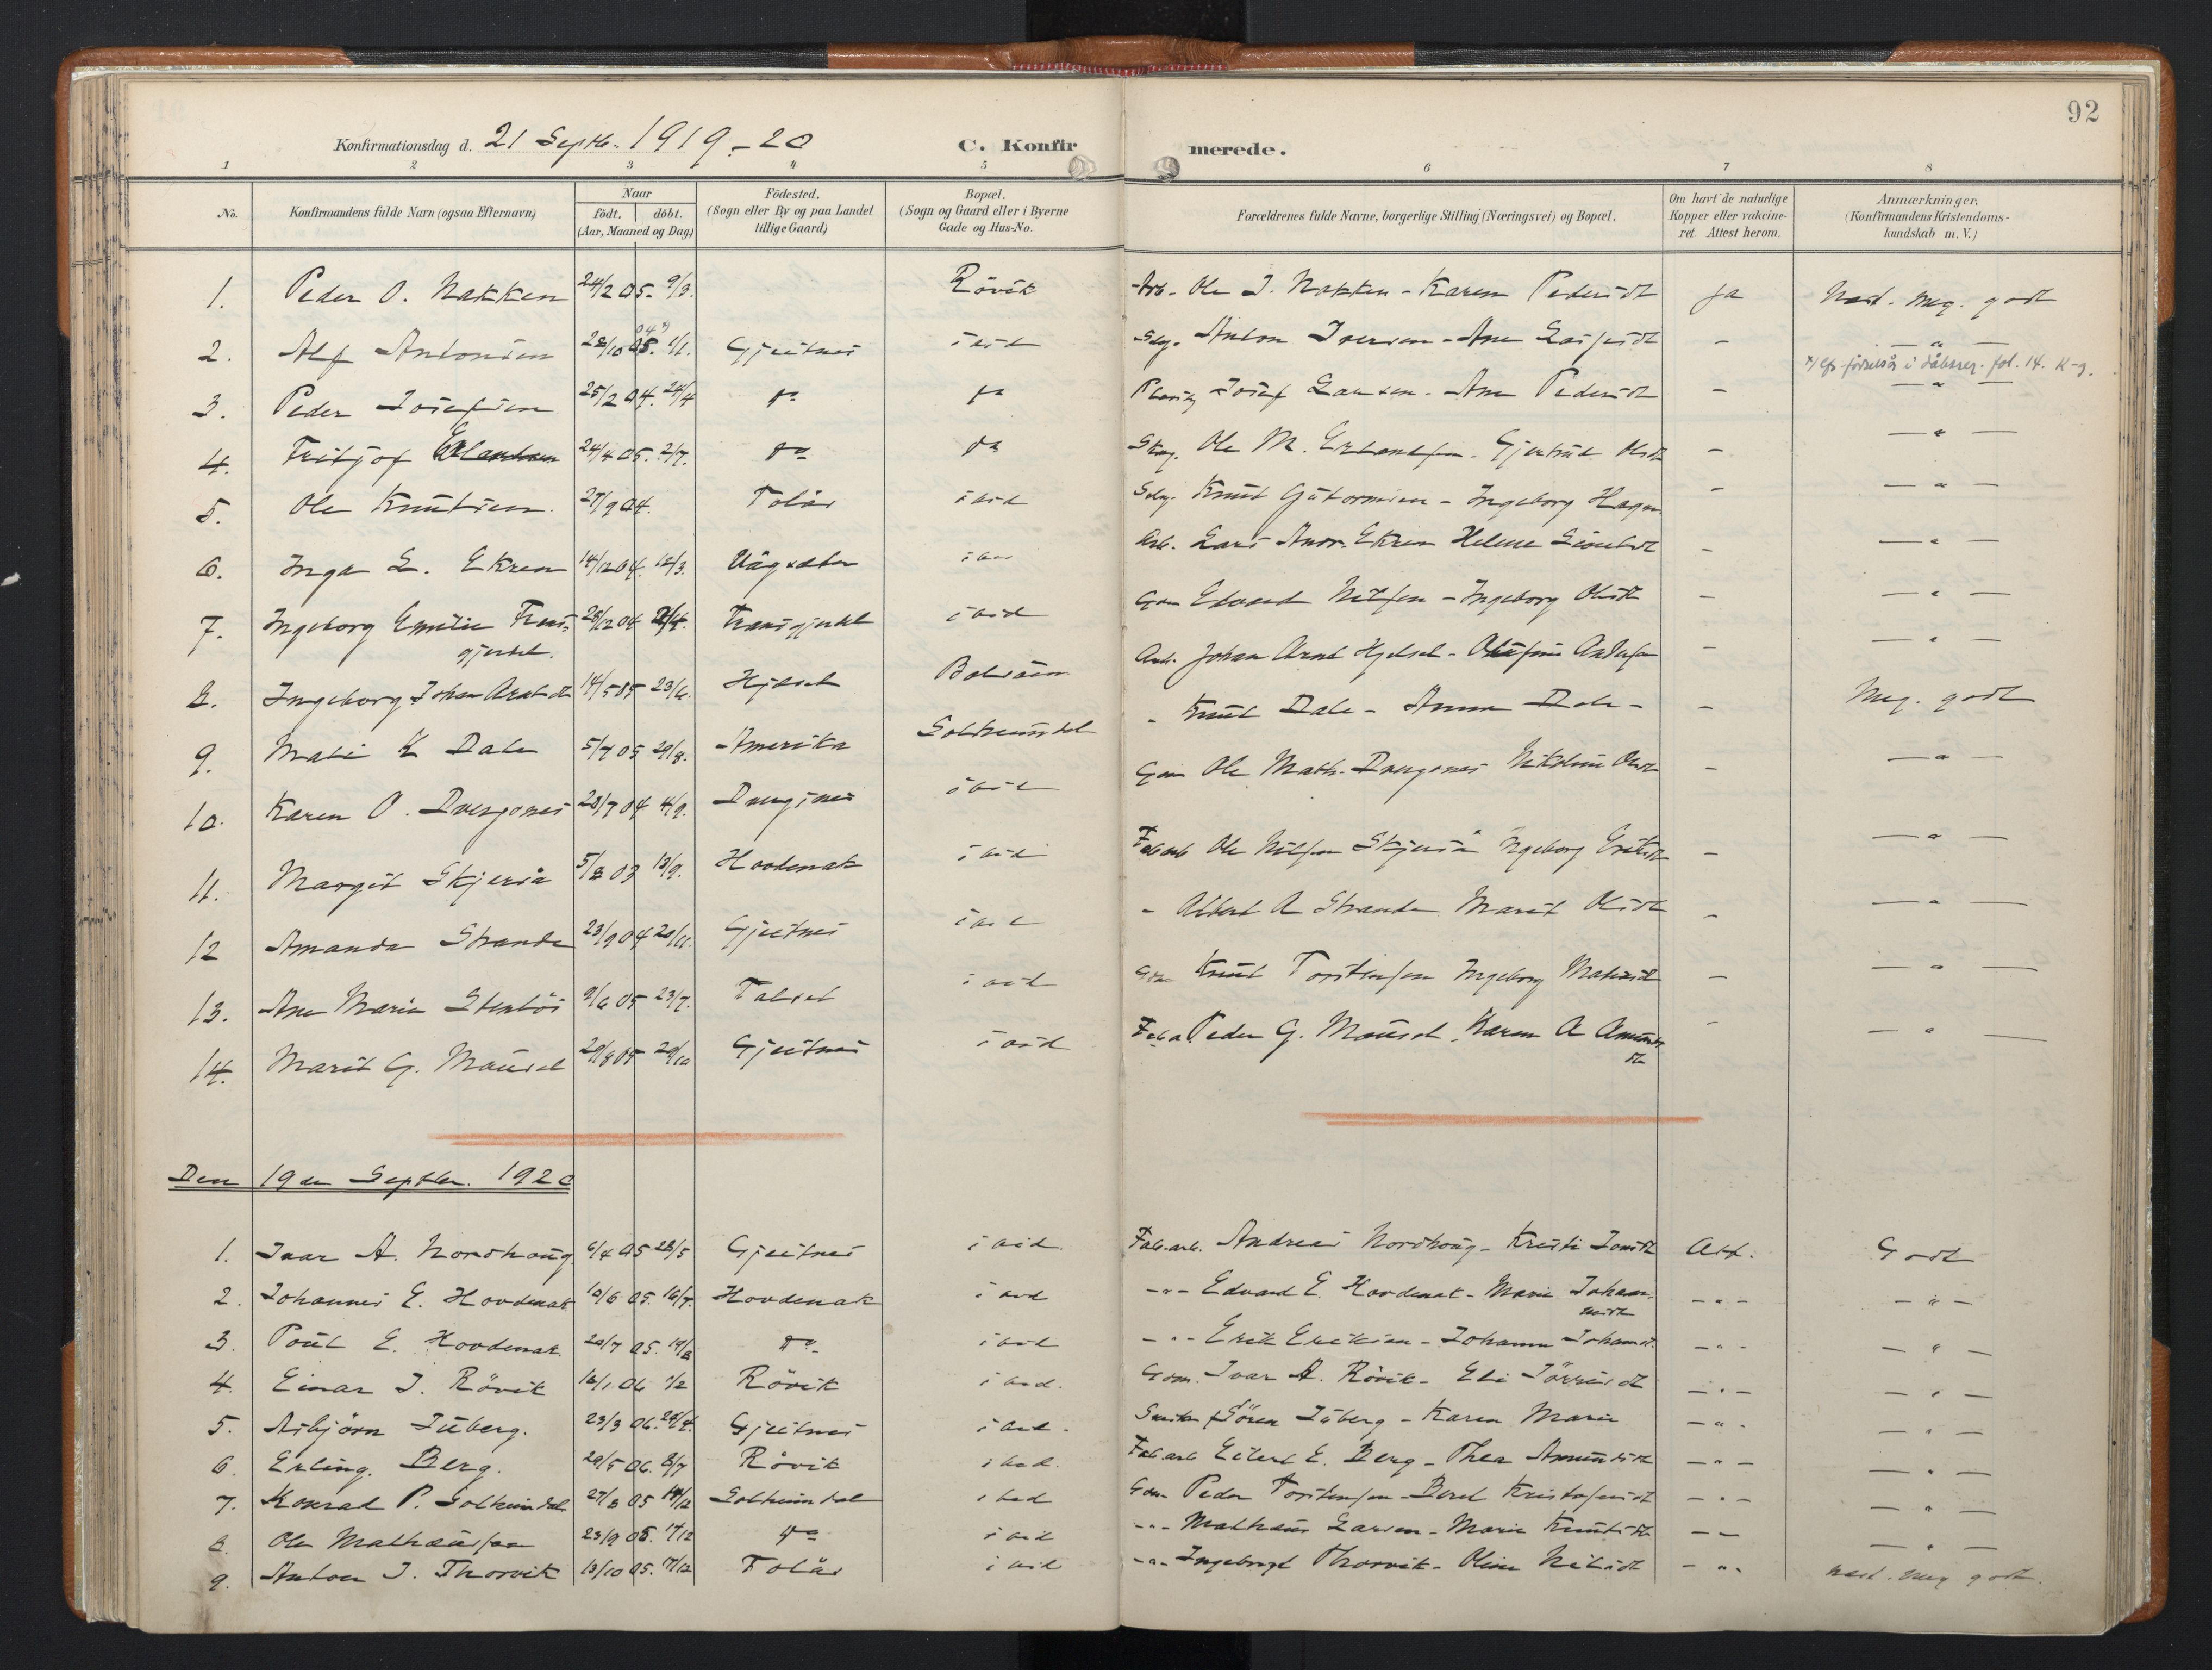 92
Konfirmationsdag d. 21 Septb. 1919-20 C. Konfirmerede.
1 2 3 4 5 6 7 8
No. Konfirmandens fulde Navn (ogsaa Efternavn) Naar födt. döbt. (Aar, Maaned og Dag) Födested. (Sogn eller By og paa Landet tillige Gaard) Bopæl. (Sogn og Gaard eller i Byerne Gade og Hus-No. Forældrenes fulde Navne, borgerlige Stilling (Næringsvei) og Bopæl. Om havt de naturlige Kopper eller vakcineret. Attest herom. Anmærkninger. (Konfirmandens Kristendomskundskab m. V.)
1. Peder O. Nakken 24/2 05. 9/3. Rövik Arb. Ole J. Nakken - Karen Pedersdt ja Næst. meg. godt
2. Alf Antonsen 28/10 05. 04 x) 1/1. Gjeitnes ibid Anton Iversen - Ane Larsesdt - -"-
x) fol. 14. K-g.
3. Peder Josefsen 25/2 04. 24/4 do do Josef Larsen - Ane Pedersdt - -"-
4. Fritjof 24/4 05. 2/7. do do Ole M. Erlandsen - Gjertrud Olsdt - -"-
5. Ole Knutsen. 27/9 04. Tolås ibid Knut Gutormsen - Ingeborg Hagen - -"-
6. Inga L. Ekren 14/12 04. 12/3. Vågsæter ibid Arb. Lars Andr. Ekren Helene - -"-
7. Ingeborg Emilie Fransgjerdet. 28/12 04 Fransgjerdet ibid Gbr. Edvard Nilsen - Ingeborg Olsdt - -"-
8. Ingeborg Johan Arntsdt 14/5 05 23/6. Hjelset Bolsöen Arb. Johan Arnt Hjelset - - -"-
9. Mali K Dale 5/7 05 29/8. Amerika Solheimdal " Knut Dale - Anna Dale - - Meg. godt
10. Karen O. Dvergsnes 28/7 04 4/9. Dvergsnes ibid Gbr. Ole Math. Dvergsnes Nikoline Olsdt - -"-
11. Margit Skjerså 5/8 03 13/9. Hovdenak ibid Fab.arb Ole Nilsen Skjerså Ingeborg Eriksdt - -"-
12 Amanda Strande 23/9 04 20/11. Gjeitnes ibid " Albert A Strande Marit Olsdt - -"-
13. Ane Marie Stenlös 9/6 05 23/7. Talset ibid Gbr. Knut Torstensen Ingeborg - -"-
14. Marit G. Mauset 29/8 05 29/10 Gjeitnes ibid Fab.a. Peder G. Mauset. Karen A Amundsdt - -"-
Den 19de Septbr. 1920
1. Ivar A. Nordhaug 6/4 05 28/5 Gjeitnes ibid. Fab.arb. Andreas Nordhaug - Kristi Jonsdt Att. Godt
2. Johannes E. Hovdenak 10/6 05. 16/7. Hovdenak ibid -"- Edvard E. Hovdenak - Marie Johannesdt -"- -"-
3. Poul E. Hovdenak 20/7 05. 19/8 do ibid -"- Erik Eriksen - Johanne Johansdt. -"- -"-
4. Einar I. Rövik 10/1 06 1/2 Rövik ibid. Gbr. Ivar A. Rövik - Eli -"- -"-
5. Asbjörn Juberg. 23/3 06. 24/4. Gjeitnes ibid. Sören Juberg - Karen Marie -"- -"-
6. Erling. Berg. 20/5 06. 8/7 Rövik ibid. Fab.arb Eilert E. Berg - Thea Amundsdt -"- -"-
7. Konrad P. Solheimdal 27/8 05 Solheimdal ibid Gbr. Peder Torstensen - Beret Kristofersdt -"- -"-
8. Ole Mathæussen 23/9 05. 17/12 do ibid -"- Mathæus Larsen - Marie Knutsdt -"- -"-
9. Anton I. Thorvik 13/10 05. 17/12 Tolås ibid -"- Ingebrigt Thorvik - Oline Nilsdt -"- Næst. meg godt.